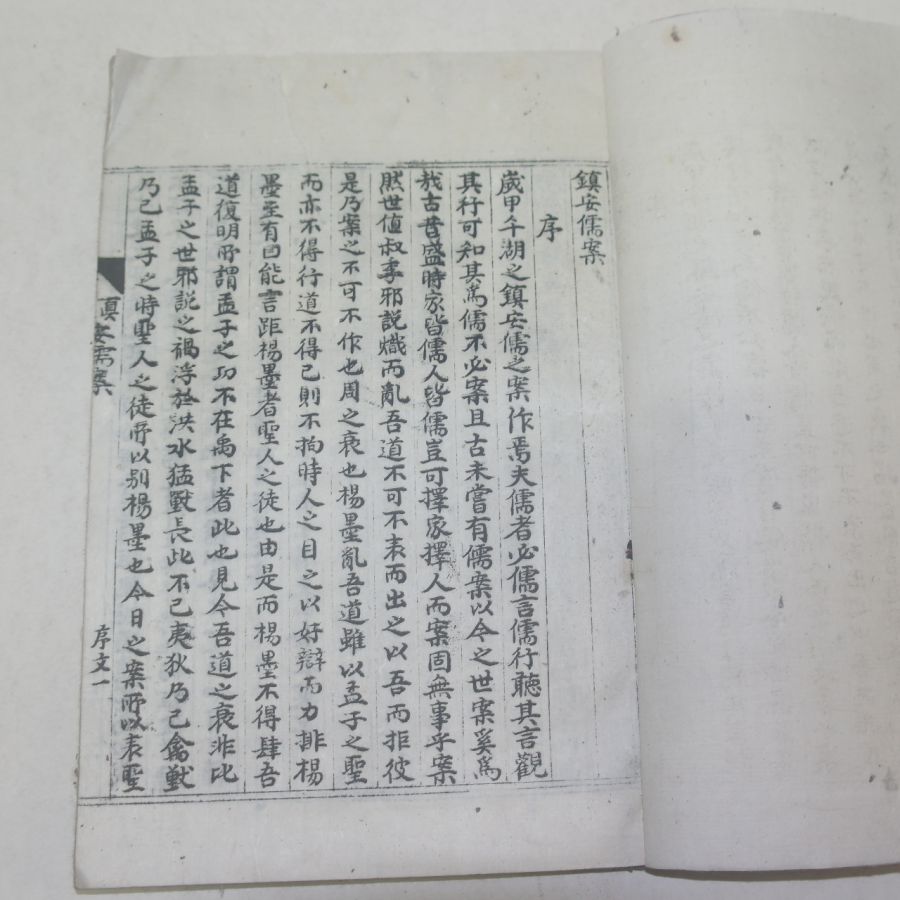 鎮安儒案
序
歲甲午湖之鎮安儒之案作焉夫儒者必儒言儒行聽其言觀
其行可知其爲儒不必案且古未嘗有儒案以今之世案奚爲
哉古昔盛時家皆儒人皆儒豈可擇家擇人而案固無事乎案
然世值叔季邪說熾而亂吾道不可不表而出之以吾而拒彼
是乃案之不可不作也周之衰也楊墨亂吾道雖以孟子之聖
而亦不得行道不得已則不拘時人之目之以好辯而力排楊
墨至有曰能言距楊墨者聖人之徒也由是而楊墨不得肆吾
道復明所謂孟子之功不在禹下者此也見今吾道之衰非比
孟子之世邪說之禍浮於洪水猛獸長此不已夷狄乃已禽獸
乃已孟子之時聖人之徒所以别楊墨也今日之案所以表聖
眞安儒案
序文一